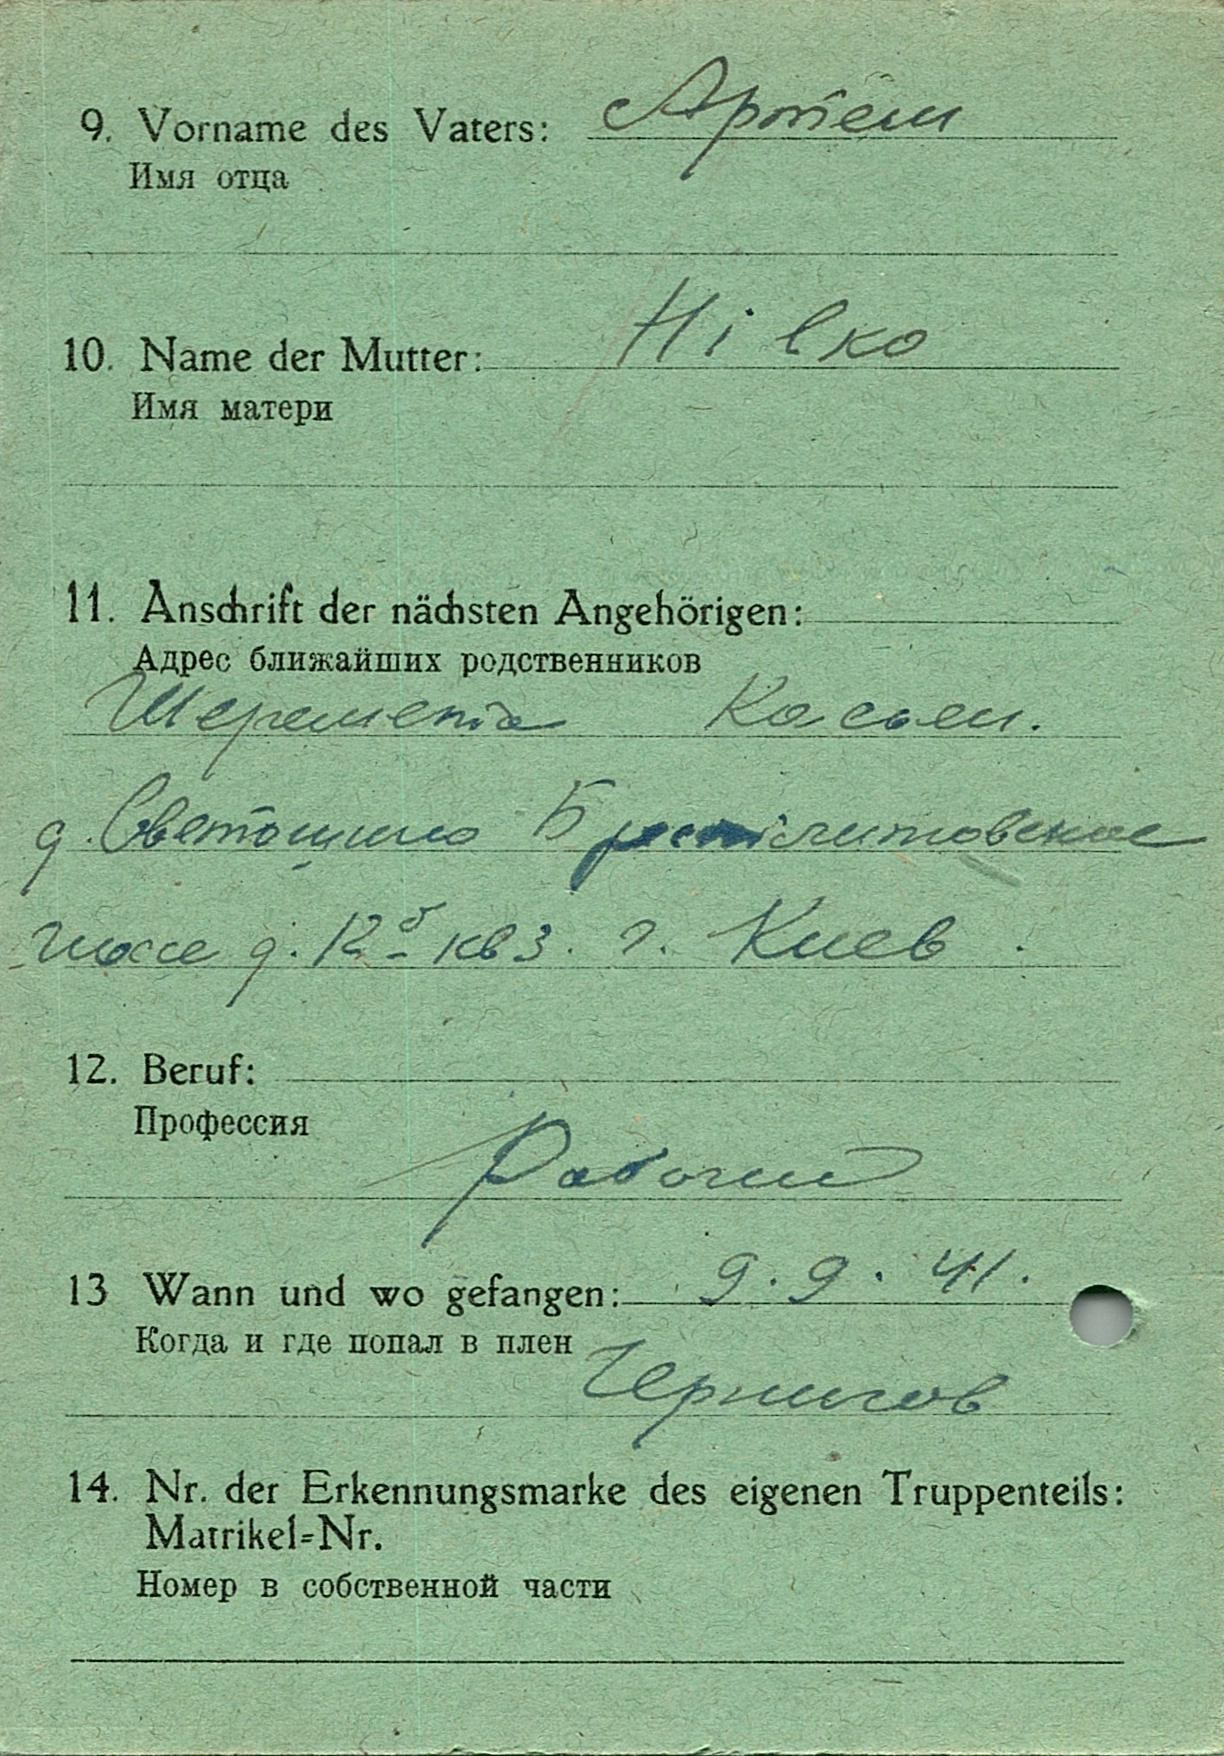 9. Vorname des Vaters: Артем
Имя отца
10. Name der Mutter: Hilко
Имя матери
11. Anschrift der nächsten Angehörigen:
Адрес ближайших родственников
Шеремета Касьян.
д. Светошино Брестлитовское
шосе д. 12б кв 3. г. Киев.
12. Beruf:
Профессия
Рабочий
13 Wann und wo gefangen: 9. 9. 41.
Когда и где попал в плен
Чернигов
14. Nr. der Erkennungsmarke des eigenen Truppenteils:
Matrikel=Nr.
Номер в собственной части